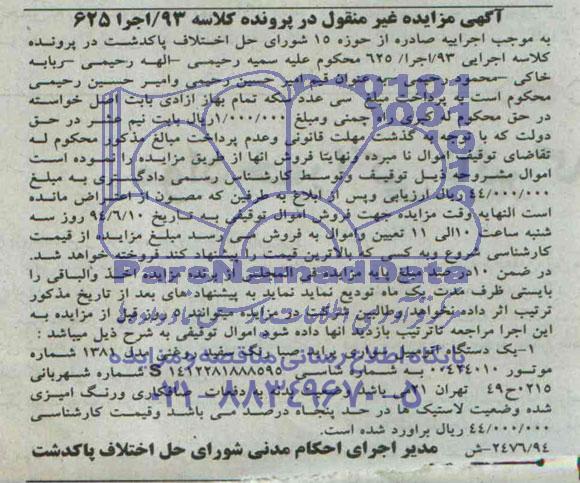 آگهی مزایده غیر منقول در پرونده کلاسه ۹۳/اجرا ۶۲۵
به موجب اجراییه صادره از حوزه ۱۵ شورای حل اختلاف پاکدشت در پرونده
کلاسه اجرایی ۹۳/اجرا/ ۶۲۵ محکوم علیه سمیه رحیمی –الهه رحیمی –ربابه
خاکی –محمود رحیمی –به عنوان قیم امیر حسین رحیمی وامیر حسین رحیمی
محکوم است به پرداخت مبلغ سی عدد سکه تمام بهار ازادی بابت اصل خواسته
در حق محکوم له کبری رام چمنی ومبلغ ۱/۰۰۰/۰۰۰ریال بابت نیم عشر در حق
دولت که با توجه به گذشت مهلت قانونی وعدم پرداخت مبالغ مذکور محکوم له
تقاضای توقیف اموال نا مبرده ونهایتا فروش انها از طریق مزایده را نموده است
اموال مشروحه ذیل توقیف وتوسط کارشناس رسمی دادگستری به مبلغ
۴۴/۰۰۰/۰۰۰ ریال ارزیابی وپس از ابلاغ به طرفین که مصون از اعتراض مانده
است النهایه وقت مزایده جهت فروش اموال توقیفی به تاریخ ۹۴/۶/۱۰ روز سه
شنبه ساعت ۱۰الی ۱۱ تعیین واموال به فروش می رسد مبلغ مزایده از قیمت
کارشناسی شروع وبه کسی که بالاترین قیمت را پیشنهاد کند فروخته خواهد شد.
در ضمن ۱۰درصد مبلغ پایه مزایده فی المجلس از برنده مزایده اخذ والباقی را
بایستی ظرف مدت یک ماه تودیع نماید نماید به پیشنهادهای بعد از تاریخ مذکور
ترتیب اثر داده نخواهد وطالبین شرکت در مزایده میتوانند ۵ روز قبل از مزایده به
این اجرا مراجعه تاترتیب بازدید انها داده شود اموال توقیفی به شرح ذیل میباشد :
۱–یک دستگاه اتومبیل سواری پراید صبا رنگ سفید روغنی مدل ۱۳۸۱ شماره
موتور ۰۰۴۳۴۰۱۰ به شماره شاسی S ۱۴۱۲۲۸۱۸۸۸۵۹۵ شماره شهربانی
۰۲۱۵ح۴۹ تهران ۲۱می باشد وضعیت بدنه به دفعات صافکاری ورنگ امیزی
شده وضعیت لاستیک ها در حد پنجاه درصد می باشد وقیمت کارشناسی
۴۴/۰۰۰/۰۰۰ ریال براورد شده است.
۲۴۷۶/۹۴–ش مدیر اجرای احکام مدنی شورای حل اختلاف پاکدشت
ParsNamadData
پایگاه اطلاع رسانی مناقصه و مزایده
۰۲۱-۸۸۳۴۹۶۷۰-۵